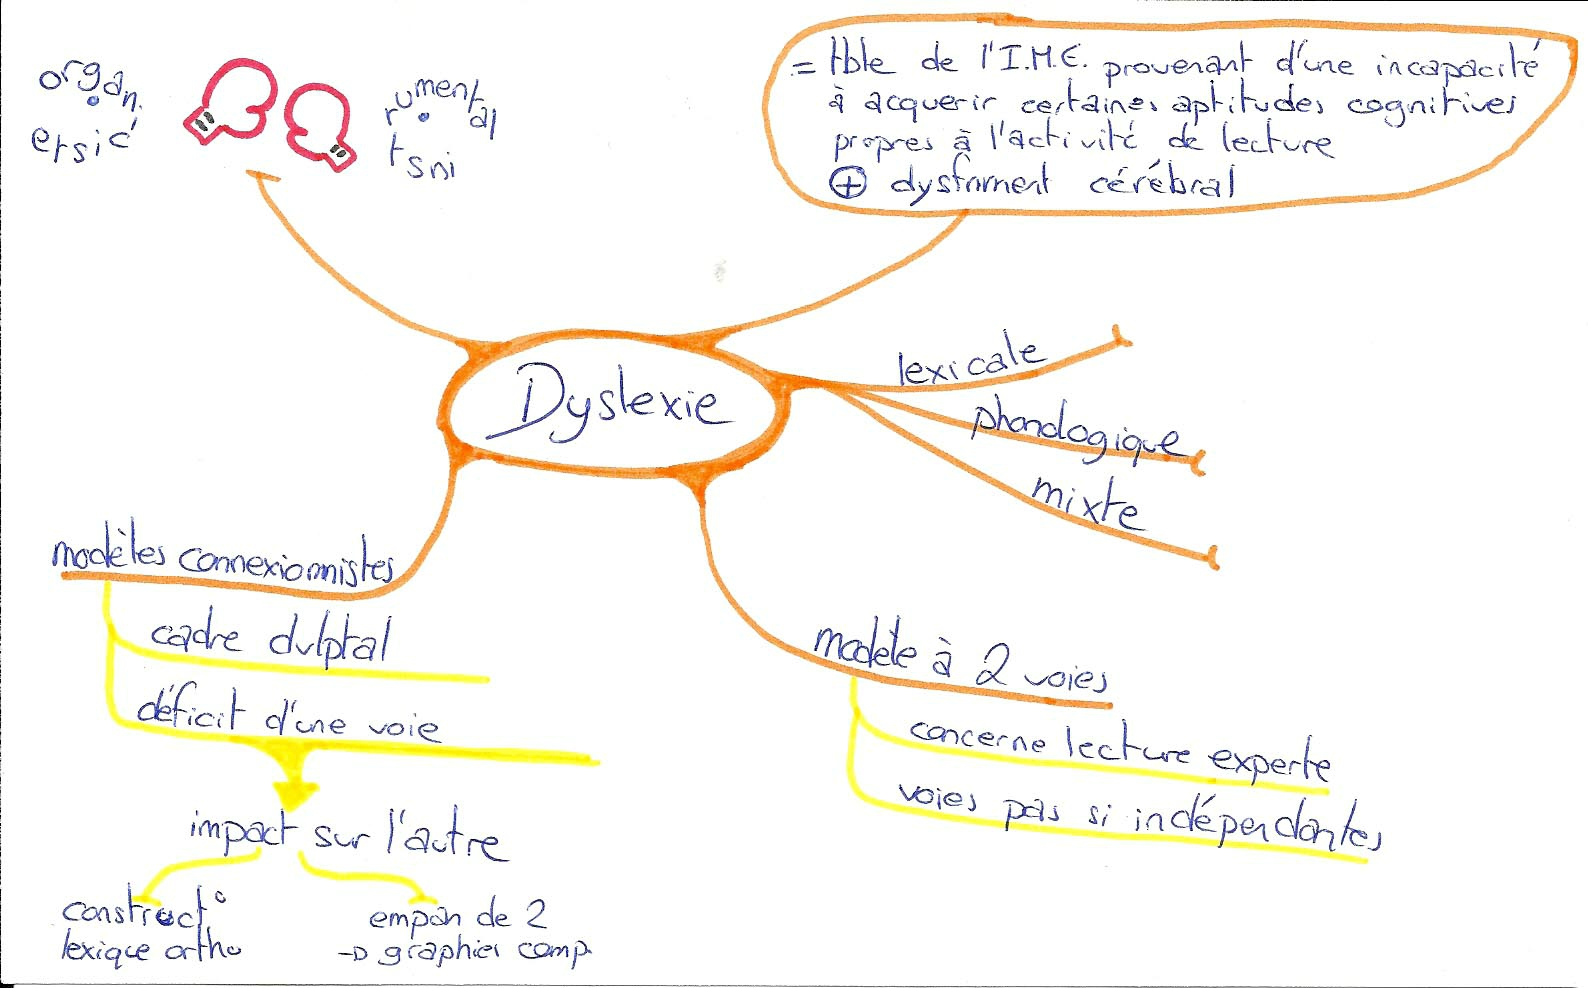 organiciste
instrumental
= tble de l'I.M.E. provenant d'une incapacité
à acquerir certaines aptitudes cognitives
propres à l'activité de lecture
⊕ dysfnment cérébral
Dyslexie
lexicale
phonologique
mixte
modèles connexionnistes
cadre dvlptal
déficit d'une voie
impact sur l'autre
construct°
lexique ortho
empan de 2
→ graphies comp.
modèle à 2 voies
concerne lecture experte
voies pas si indépendantes